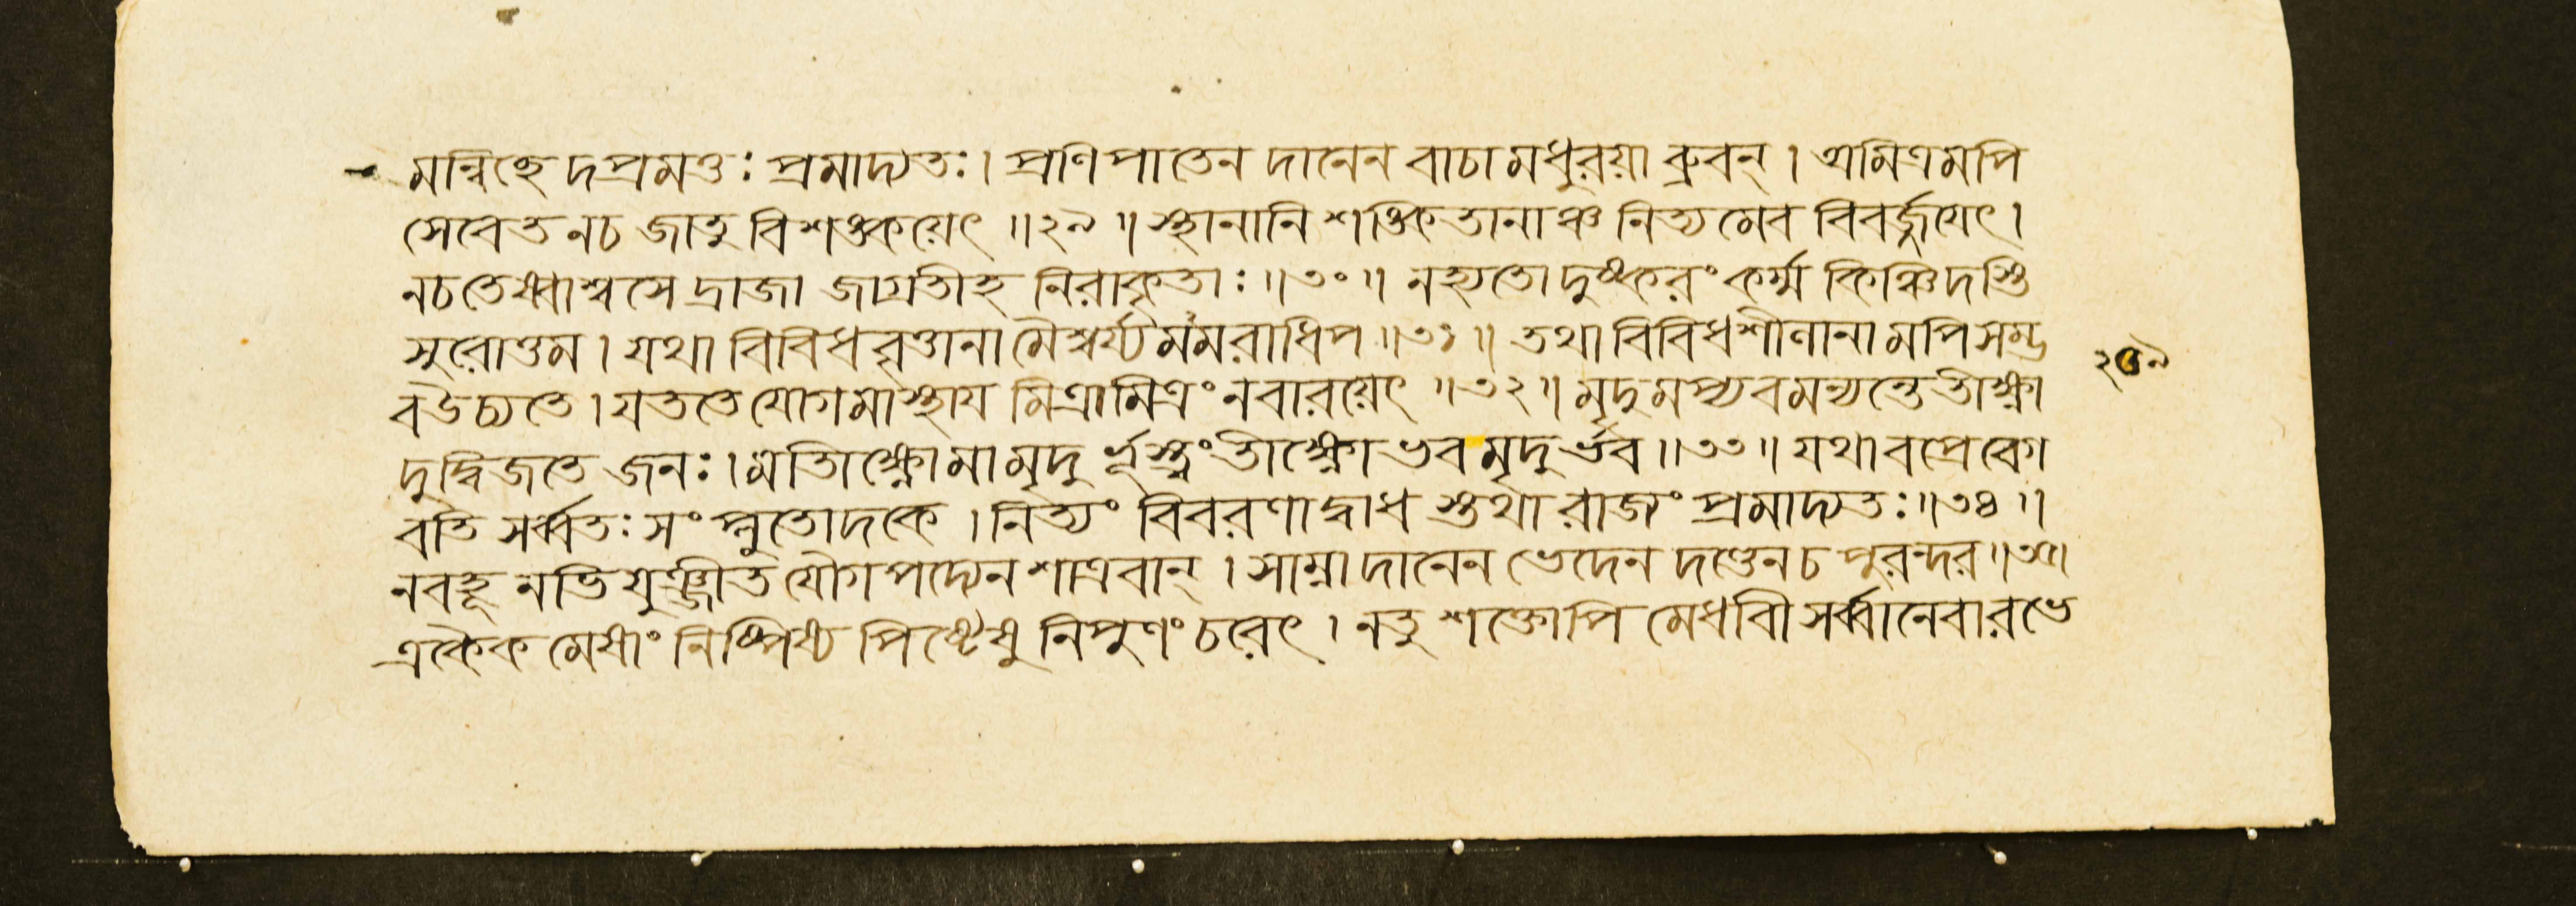 মন্বিচ্ছেদপ্রমত্তঃ প্রমাদ্যতঃ। প্রণিপাতেন দানেন বাচা মধুরয়া ব্রুবন্ । অমিত্রমপি
সেবেত নচ জাতু বিশঙ্কয়েৎ ॥২৯॥ স্থানানি শঙ্কিতানাঞ্চ নিত্যমেব বিবর্জ্জয়েৎ।
নচ তেষ্বাশ্বসেদ্রাজা জাগ্রতীহ নিরাকৃতাঃ॥৩০॥ নহ্যতো দুষ্করং কর্ম্ম কিঞ্চিদস্তি
সুরোত্তম। যথা বিবিধবৃত্তানামৈশ্বর্য্যমমরাধিপ॥৩১॥ তথা বিবিধশীলানামপি সম্ভ
ব উচ্যতে। যততে যোগমাস্থায় মিত্রামিত্রং নবারয়েৎ ॥৩২॥ মৃদুমপ্যবমন্যন্তে তীক্ষ্ণা
দুদ্বিজতে জনঃ। মাতীক্ষ্ণোমামৃদুর্ভূস্ত্বং তীক্ষ্ণো ভব মৃদুর্ভব॥৩৩॥ যথা বপ্রে বেগ
বতি সর্ব্বতঃ সংপ্লুতোদকে। নিত্যং বিবরণাদ্বাধস্তথা রাজ্যং প্রমাদ্যতঃ॥৩৪॥
নবহূনভিযুঞ্জীত যৌগপদ্যেন শাত্রবান্। সাম্না দানেন ভেদেন দণ্ডেনচ পুরন্দর॥৩৫॥
একৈকমেষাং নিষ্পিষ্য পিষ্টেষু নিপুণং চরেৎ। নতু শক্তোপি মেধাবী সর্ব্বানেবারভে